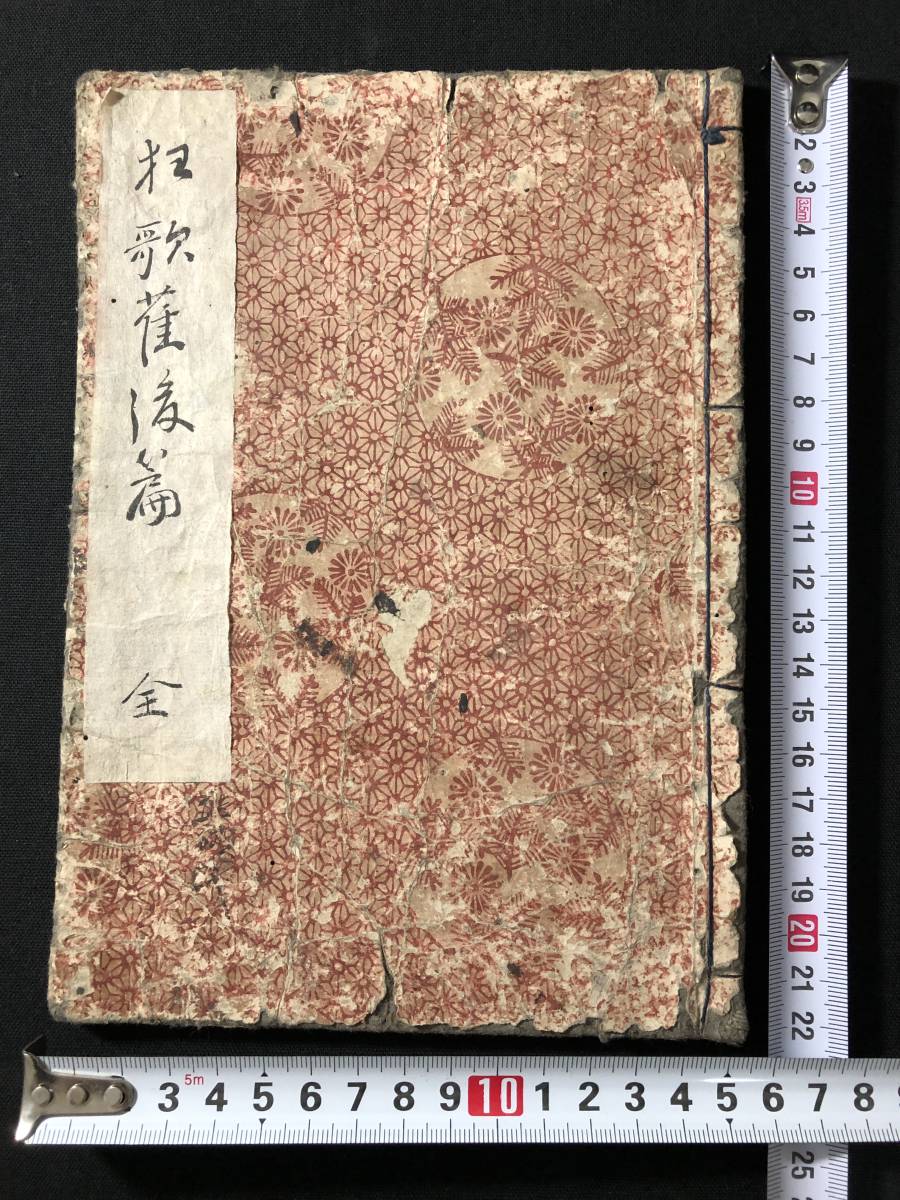 狂歌萑後篇 全
2
3
3.5m
4
5
6
7
8
9
10
11
12
13
14
15
16
17
18
19
20
21
22
25
3 5m 4 5 6 7 8 9 10 1 2 3 4 5 6 7 8 9